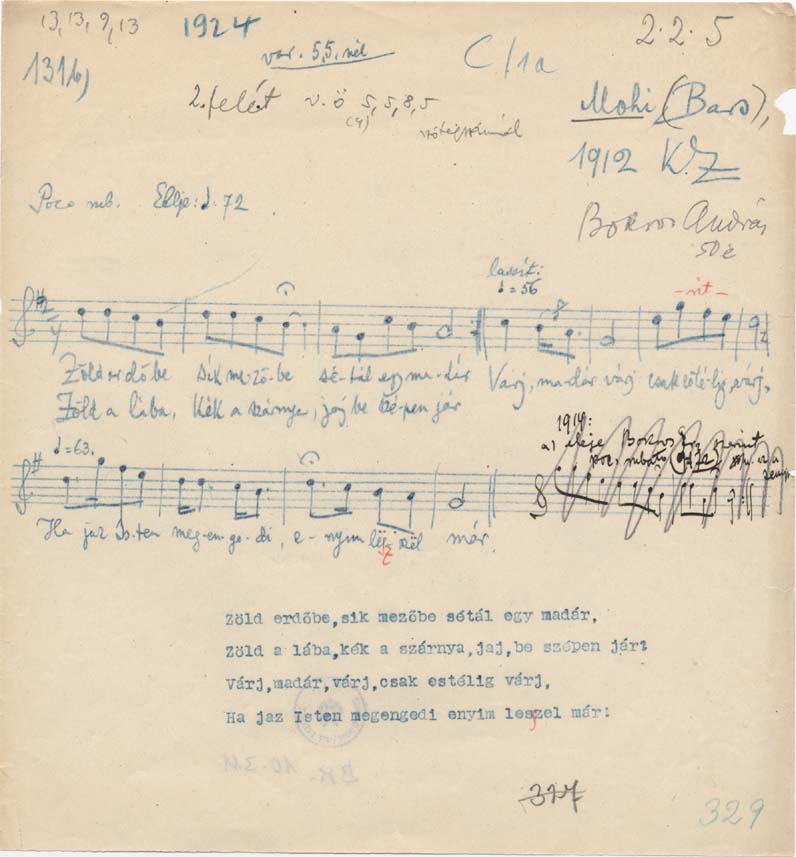 13, 13, 9, 13
1924
var. 5,5.nél
C/1a
2.2.5
131b)
2. felét v.ö 5,5,8,5
(4)
Mohi (Bars),
1912 K.Z
Bokros András
50 é
Poco rub. Eleje: 72
lassít:
= 56
-rit-
Zöld erdőbe sík me-ző-be sé-tál egy ma-dár Várj, ma-dár várj csak esté-lig, várj,
Zöld a lába, kék a szárnya, jaj be szé-pen jár
= 63.
1914:
a) eleje Bokros szerint
poc. rubato 72
Ha jaz Is-ten meg-en-ge-di, e-nyim lej-szël már.
sz
Zöld erdőbe,sik mezőbe sétál egy madár,
Zöld a lába,kék a szárnya,jaj,be szépen jár:
Várj,madár,várj,csak estélig várj,
Ha jaz Isten megengedi enyim leszel már!
BR-10-311
317
329